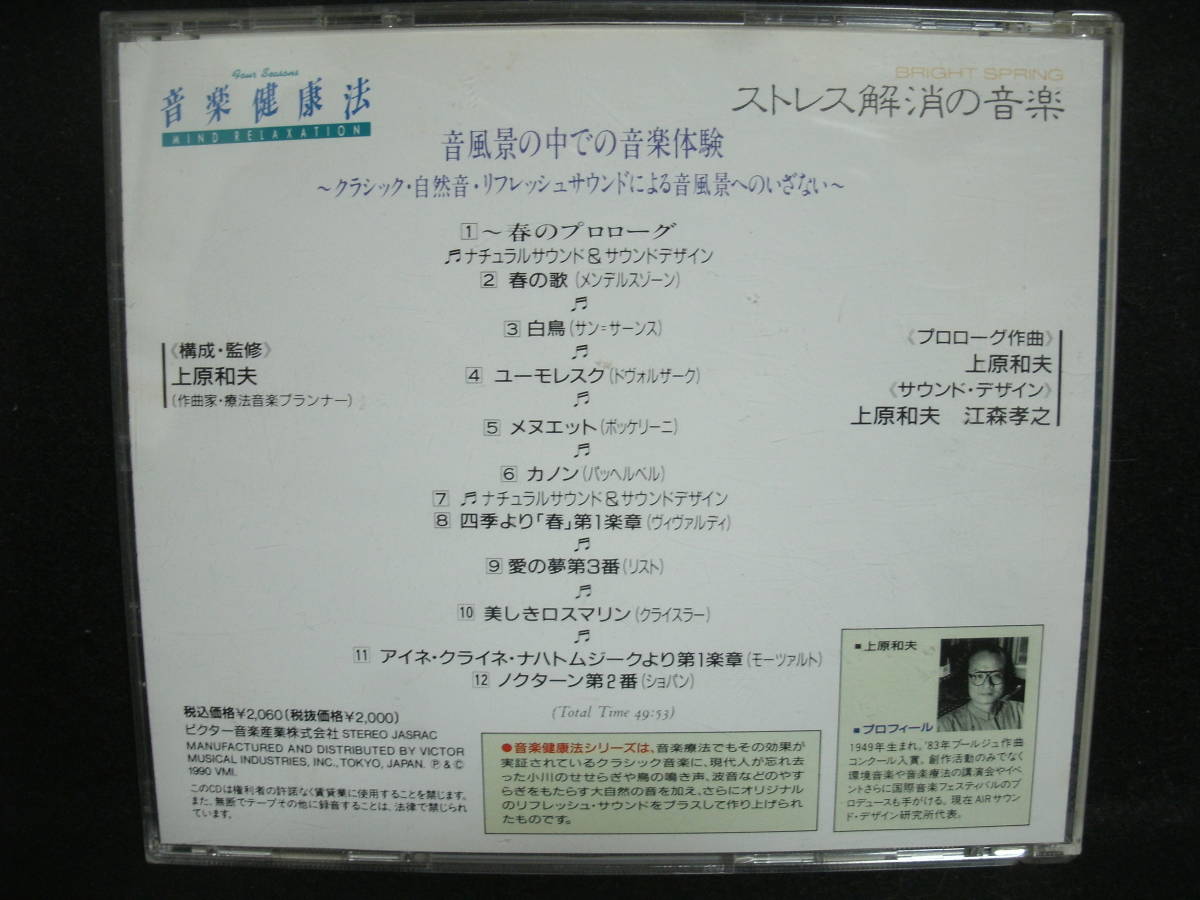 Four Seasons
音楽健康法
MIND RELAXATION
BRIGHT SPRING
ストレス解消の音楽
音風景の中での音楽体験
〜クラシック・自然音・リフレッシュサウンドによる音風景へのいざない〜
1 〜春のプロローグ
♬ナチュラルサウンド&サウンドデザイン
2 春の歌(メンデルスゾーン)
♬
3 白鳥(サン=サーンス)
♬
4 ユーモレスク(ドヴォルザーク)
♬
5 メヌエット(ボッケリーニ)
♬
6 カノン(パッヘルベル)
7 ♬ナチュラルサウンド&サウンドデザイン
8 四季より「春」第1楽章(ヴィヴァルディ)
♬
9 愛の夢第3番(リスト)
♬
10 美しきロスマリン(クライスラー)
♬
11 アイネ・クライネ・ナハトムジークより第1楽章(モーツァルト)
12 ノクターン第2番(ショパン)
(Total Time 49:53)
《構成・監修》
上原和夫
(作曲家・療法音楽プランナー)
《プロローグ作曲》
上原和夫
《サウンド・デザイン》
上原和夫 江森孝之
税込価格¥2,060(税抜価格¥2,000)
ビクター音楽産業株式会社 STEREO JASRAC
MANUFACTURED AND DISTRIBUTED BY VICTOR
MUSICAL INDUSTRIES, INC., TOKYO, JAPAN. Ⓟ & ©
1990 VMI.
このCDは権利者の許諾なく賃貸業に使用することを禁じます。
また、無断でテープその他に録音することは、法律で禁じられ
ています。
●音楽健康法シリーズは、音楽療法でもその効果が
実証されているクラシック音楽に、現代人が忘れ去
った小川のせせらぎや鳥の鳴き声、波音などのやす
らぎをもたらす大自然の音を加え、さらにオリジナル
のリフレッシュ・サウンドをプラスして作り上げられ
たものです。
■上原和夫
■プロフィール
1949年生まれ。'83年ブールジュ作曲
コンクール入賞。創作活動のみでなく
環境音楽や音楽療法の講演会やイベ
ントさらに国際音楽フェスティバルのプ
ロデュースも手がける。現在AIRサウン
ド・デザイン研究所代表。